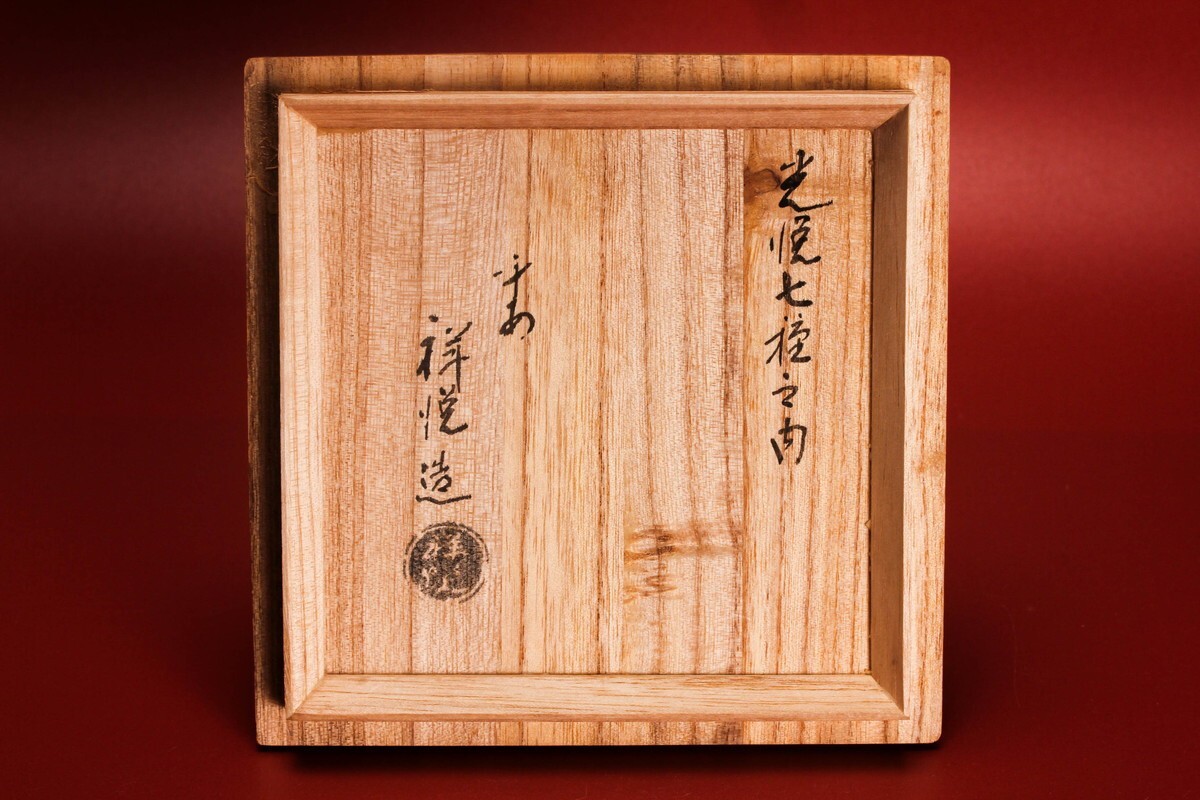 光悦七種之内
平安
祥悦造